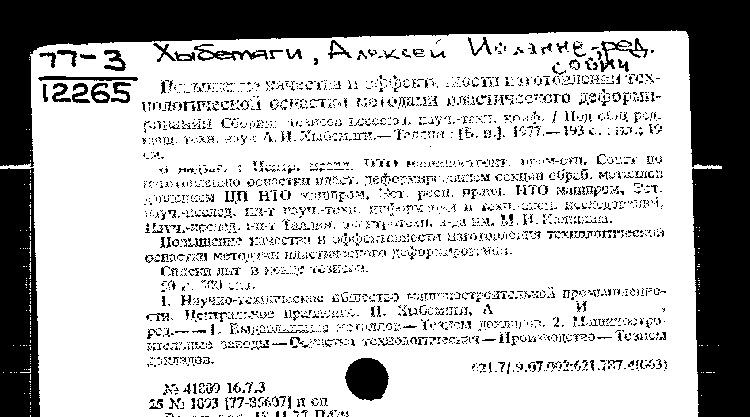 77-3
12265
Хыбемяги, Алексей Иоханне-ред.
сович
Повышение качества и эффективности изготовления тех-
нологической оснастки методами пластического деформи-
рования Сборник тезисов всесоюз. науч.-техн. конф. / Под общ ред.
канд. техн. наук А. И. Хыбемяги.— Таллин : [Б. и.], 1977.— 193 с. : ил.; 19
см.
В надзаг. : Центр. правл. НТО машиностроит. пром-сти, Совет по
оснастки пласт. деформированием секции обраб. металлов
давлением ЦП НТО машпром, Эст. респ. правл. НТО машпром, Эст.
науч.-исслед. ин-т науч.-техн. информации и техн.-экон. исследований,
Науч.-исслед. ин-т Таллин. з-да им. М. И. Калинина.
Повышение качества и эффективности изготовления технологической
оснастки методами пластического деформирования.
Списки лит. в конце тезисов.
50 к. 500 экз.
1. Научно-техническое общество машиностроительной промышленно-
сти. Центральное правление. II. Хыбемяги, А И ,
ред.— —1. Выдавливание металлов—Тезисы докладов. 2. Машинострои-
тельные заводы—Оснастка технологическая—Производство—Тезисы
докладов.
№ 41809 16.7.3
25 № 1893 [77-85607] п оп